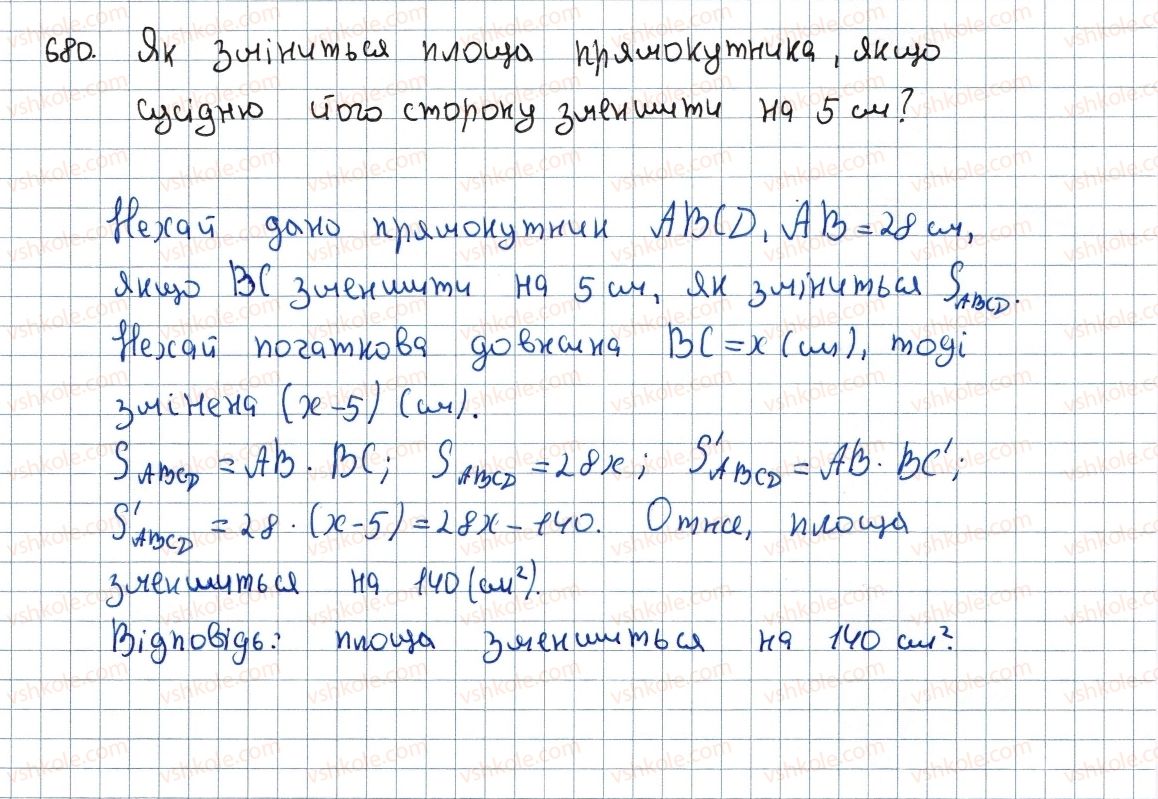 680. Як зміниться площа прямокутника, якщо
сусідню його сторону зменшити на 5 см?
Нехай дано прямокутник ABCD, AB = 28 см,
якщо BC зменшити на 5 см, як зміниться S_ABCD.
Нехай початкова довжина BC = x (см), тоді
змінена (x – 5) (см).
S_ABCD = AB · BC; S_ABCD = 28x; S'_ABCD = AB · BC';
S'_ABCD = 28 · (x – 5) = 28x – 140. Отже, площа
зменшиться на 140 (см²).
Відповідь: площа зменшиться на 140 см².